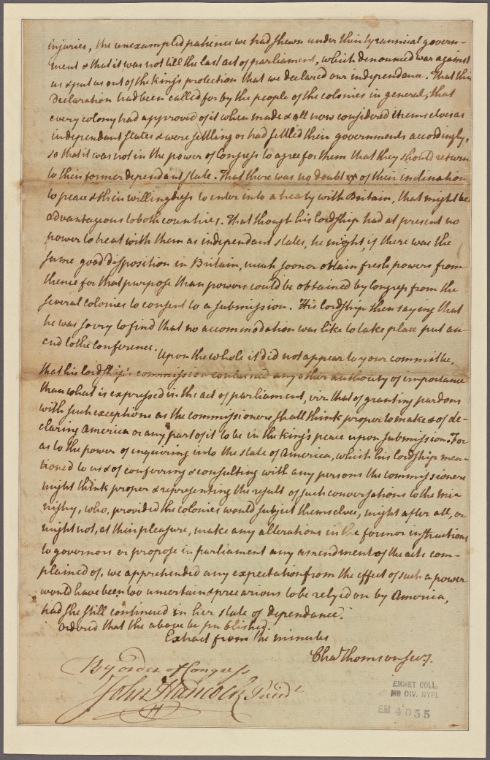 injuries, the unexampled patience we had shewn under their tyrannical govern-
ment & that it was not till the last act of parliament, which denounced war against
us & put us out of the king's protection that we declared our independance. That this
Declaration had been called for by the people of the colonies in general; that
every colony had approved of it when made & all now considered themselves as
independant states & were settling or had settled their governments accordingly,
so that it was not in the power of Congress to agree for them that they should return
to their former dependant state. That there was no doubt of their inclination
to peace & their willingness to enter into a treaty with Britain, that might be
advantageous to both countries. That though his lordship had at present no
power to treat with them as independant states, he might, if there was the
same good disposition in Britain, much sooner obtain fresh powers from
thence for that purpose than powers could be obtained by Congress from the
several colonies to consent to a submission. His lordship then saying that
he was sorry to find that no accommodation was like to take place put an
end to the conference.
Upon the whole it did not appear to your committee,
that his lordship's commission contained any other authority of importance
than what is expressed in the act of parliament, viz. that of granting pardons
with such exceptions as the commissioners shall think proper to make & of de-
claring America or any part of it to be in the king's peace upon submission. For
as to the power of enquiring into the state of America, which his lordship men-
tioned to us & of conferring & consulting with any persons the commissioners
might think proper & representing the result of such conversations to the mi-
nistry, who, provided the colonies would subject themselves, might after all, or
might not, at their pleasure, make any alterations in the former instructions
to governors or propose in parliament any amendment of the acts com-
plained of, we apprehended any expectation from the effect of such a power
would have been too uncertain & precarious to be relyed on by America,
had she still continued in her state of dependance."
Ordered that the above be published.
Extract from the minutes
Cha.s Thomson Secy.
By order of Congress
John Hancock Presid.t
EMMET COLL.
MS DIV. NYPL
EM 4055